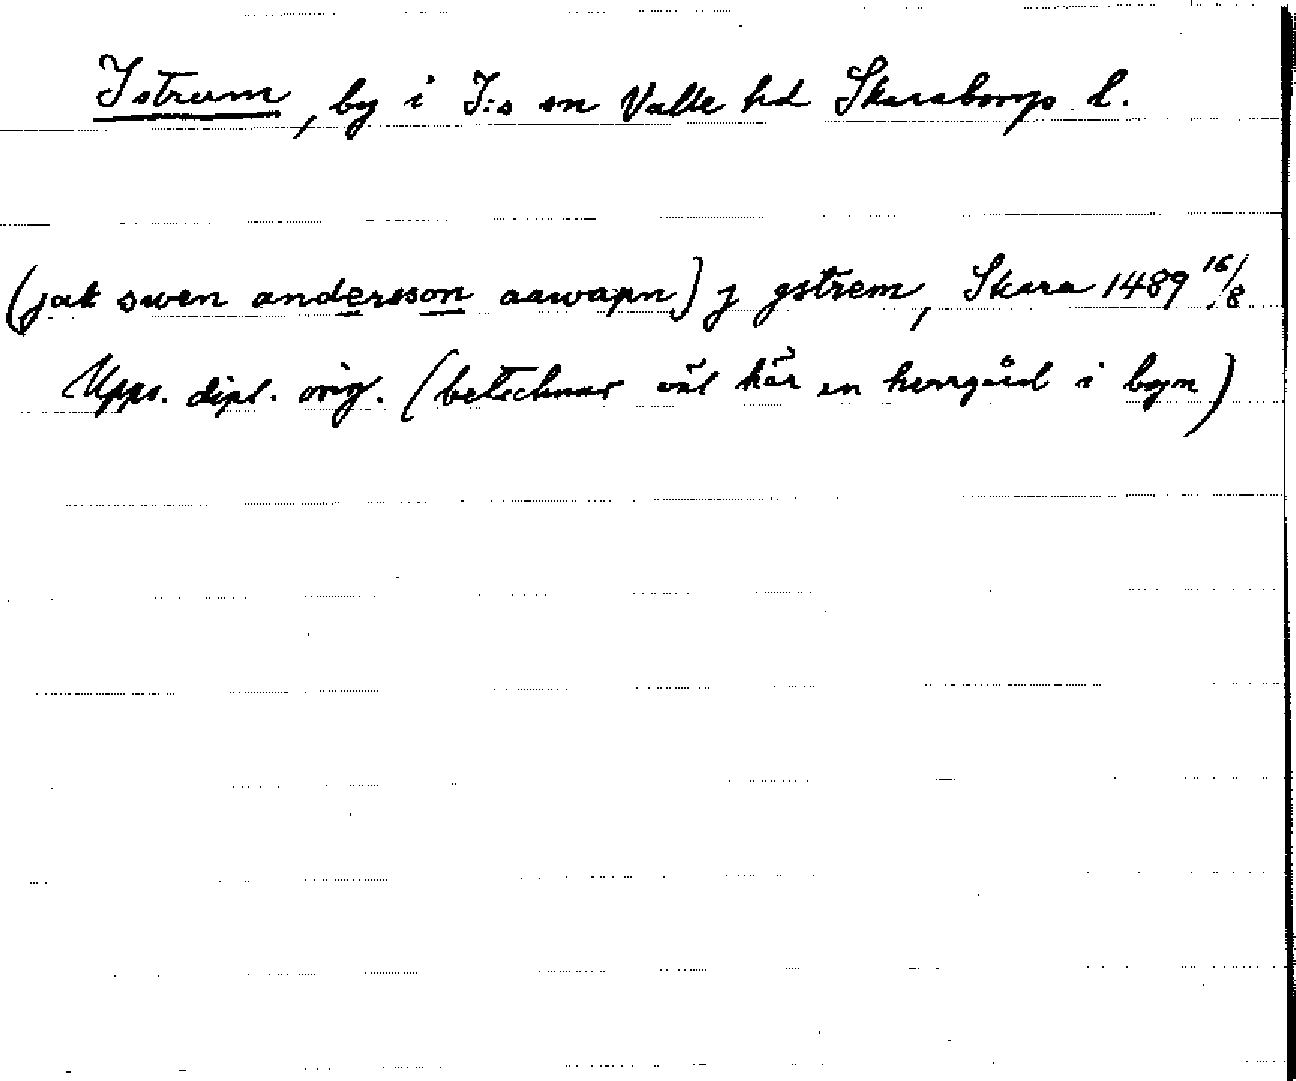 Istrum, by i I:s sn Valle hd Skaraborgs l.
(jak swen andersson aawapn) j gstrem, Skara 1489 16/8
Upps. dipl. orig. (betecknar väl här en herrgård i byn)